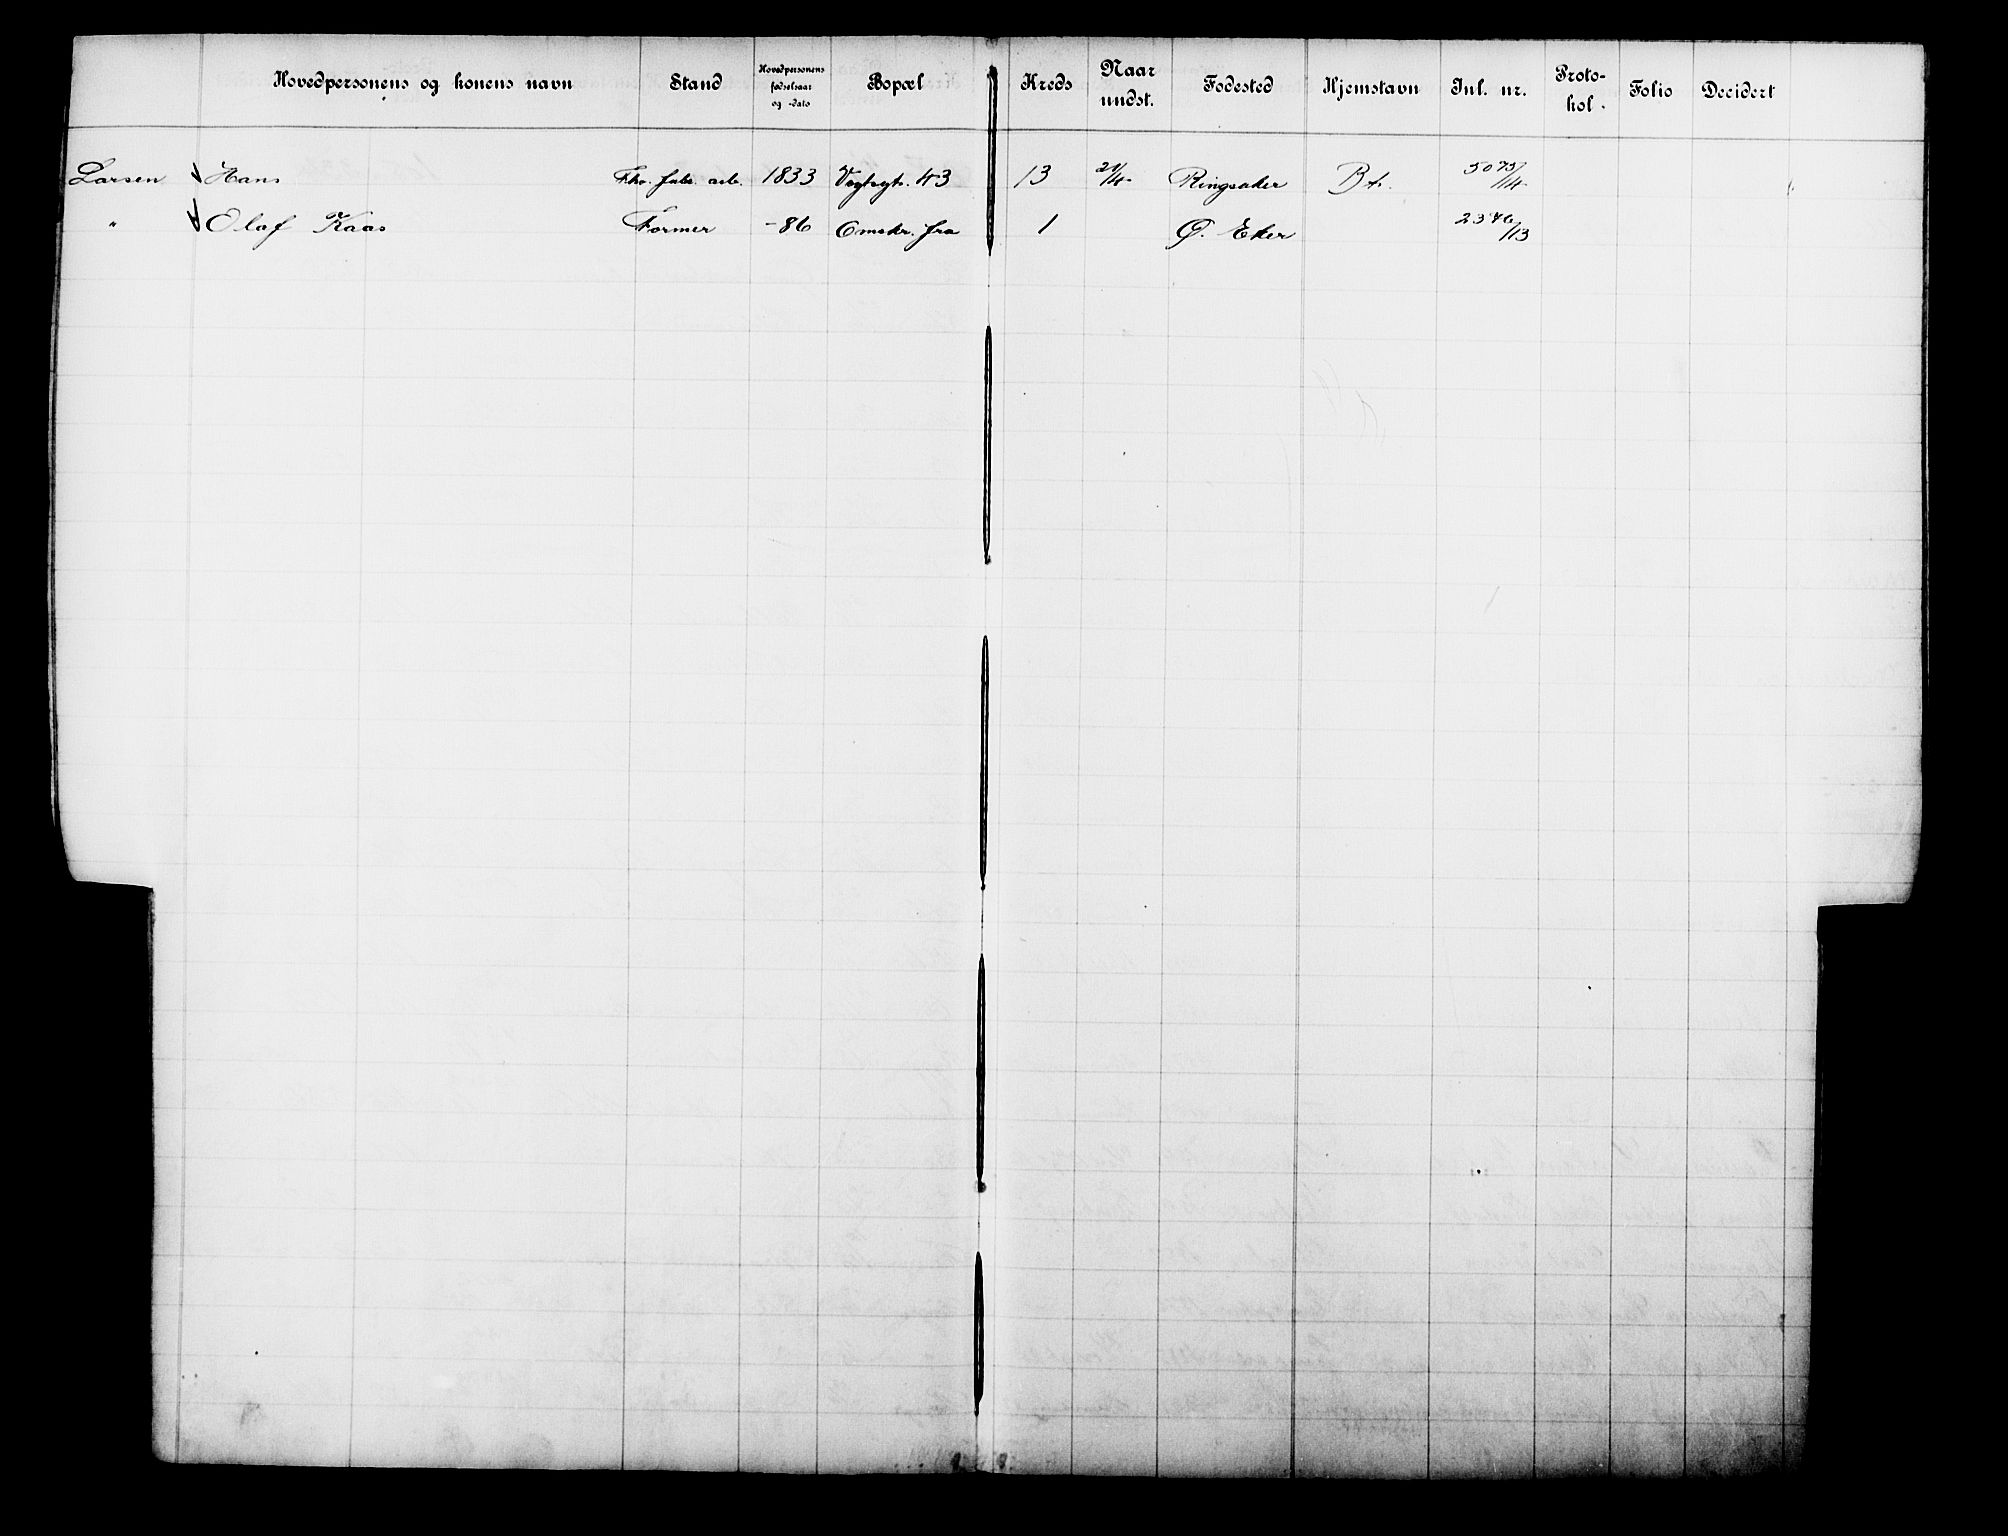 Hovedpersonens og konens navn Stand Hovedpersonens fødselsaar og -dato Bopæl Kreds Naar undst. Fødested Hjemstavn Jnl. nr. Proto-kol. Folio Decidert
Larsen Hans Fhv. fabr. arb. 1833 Vogtsgt. 43 13 21/4 Ringsaker B t. 5073/14
" Olaf Kaas Former -86 Omskr. fra 1 Ø. Eker 2376/13